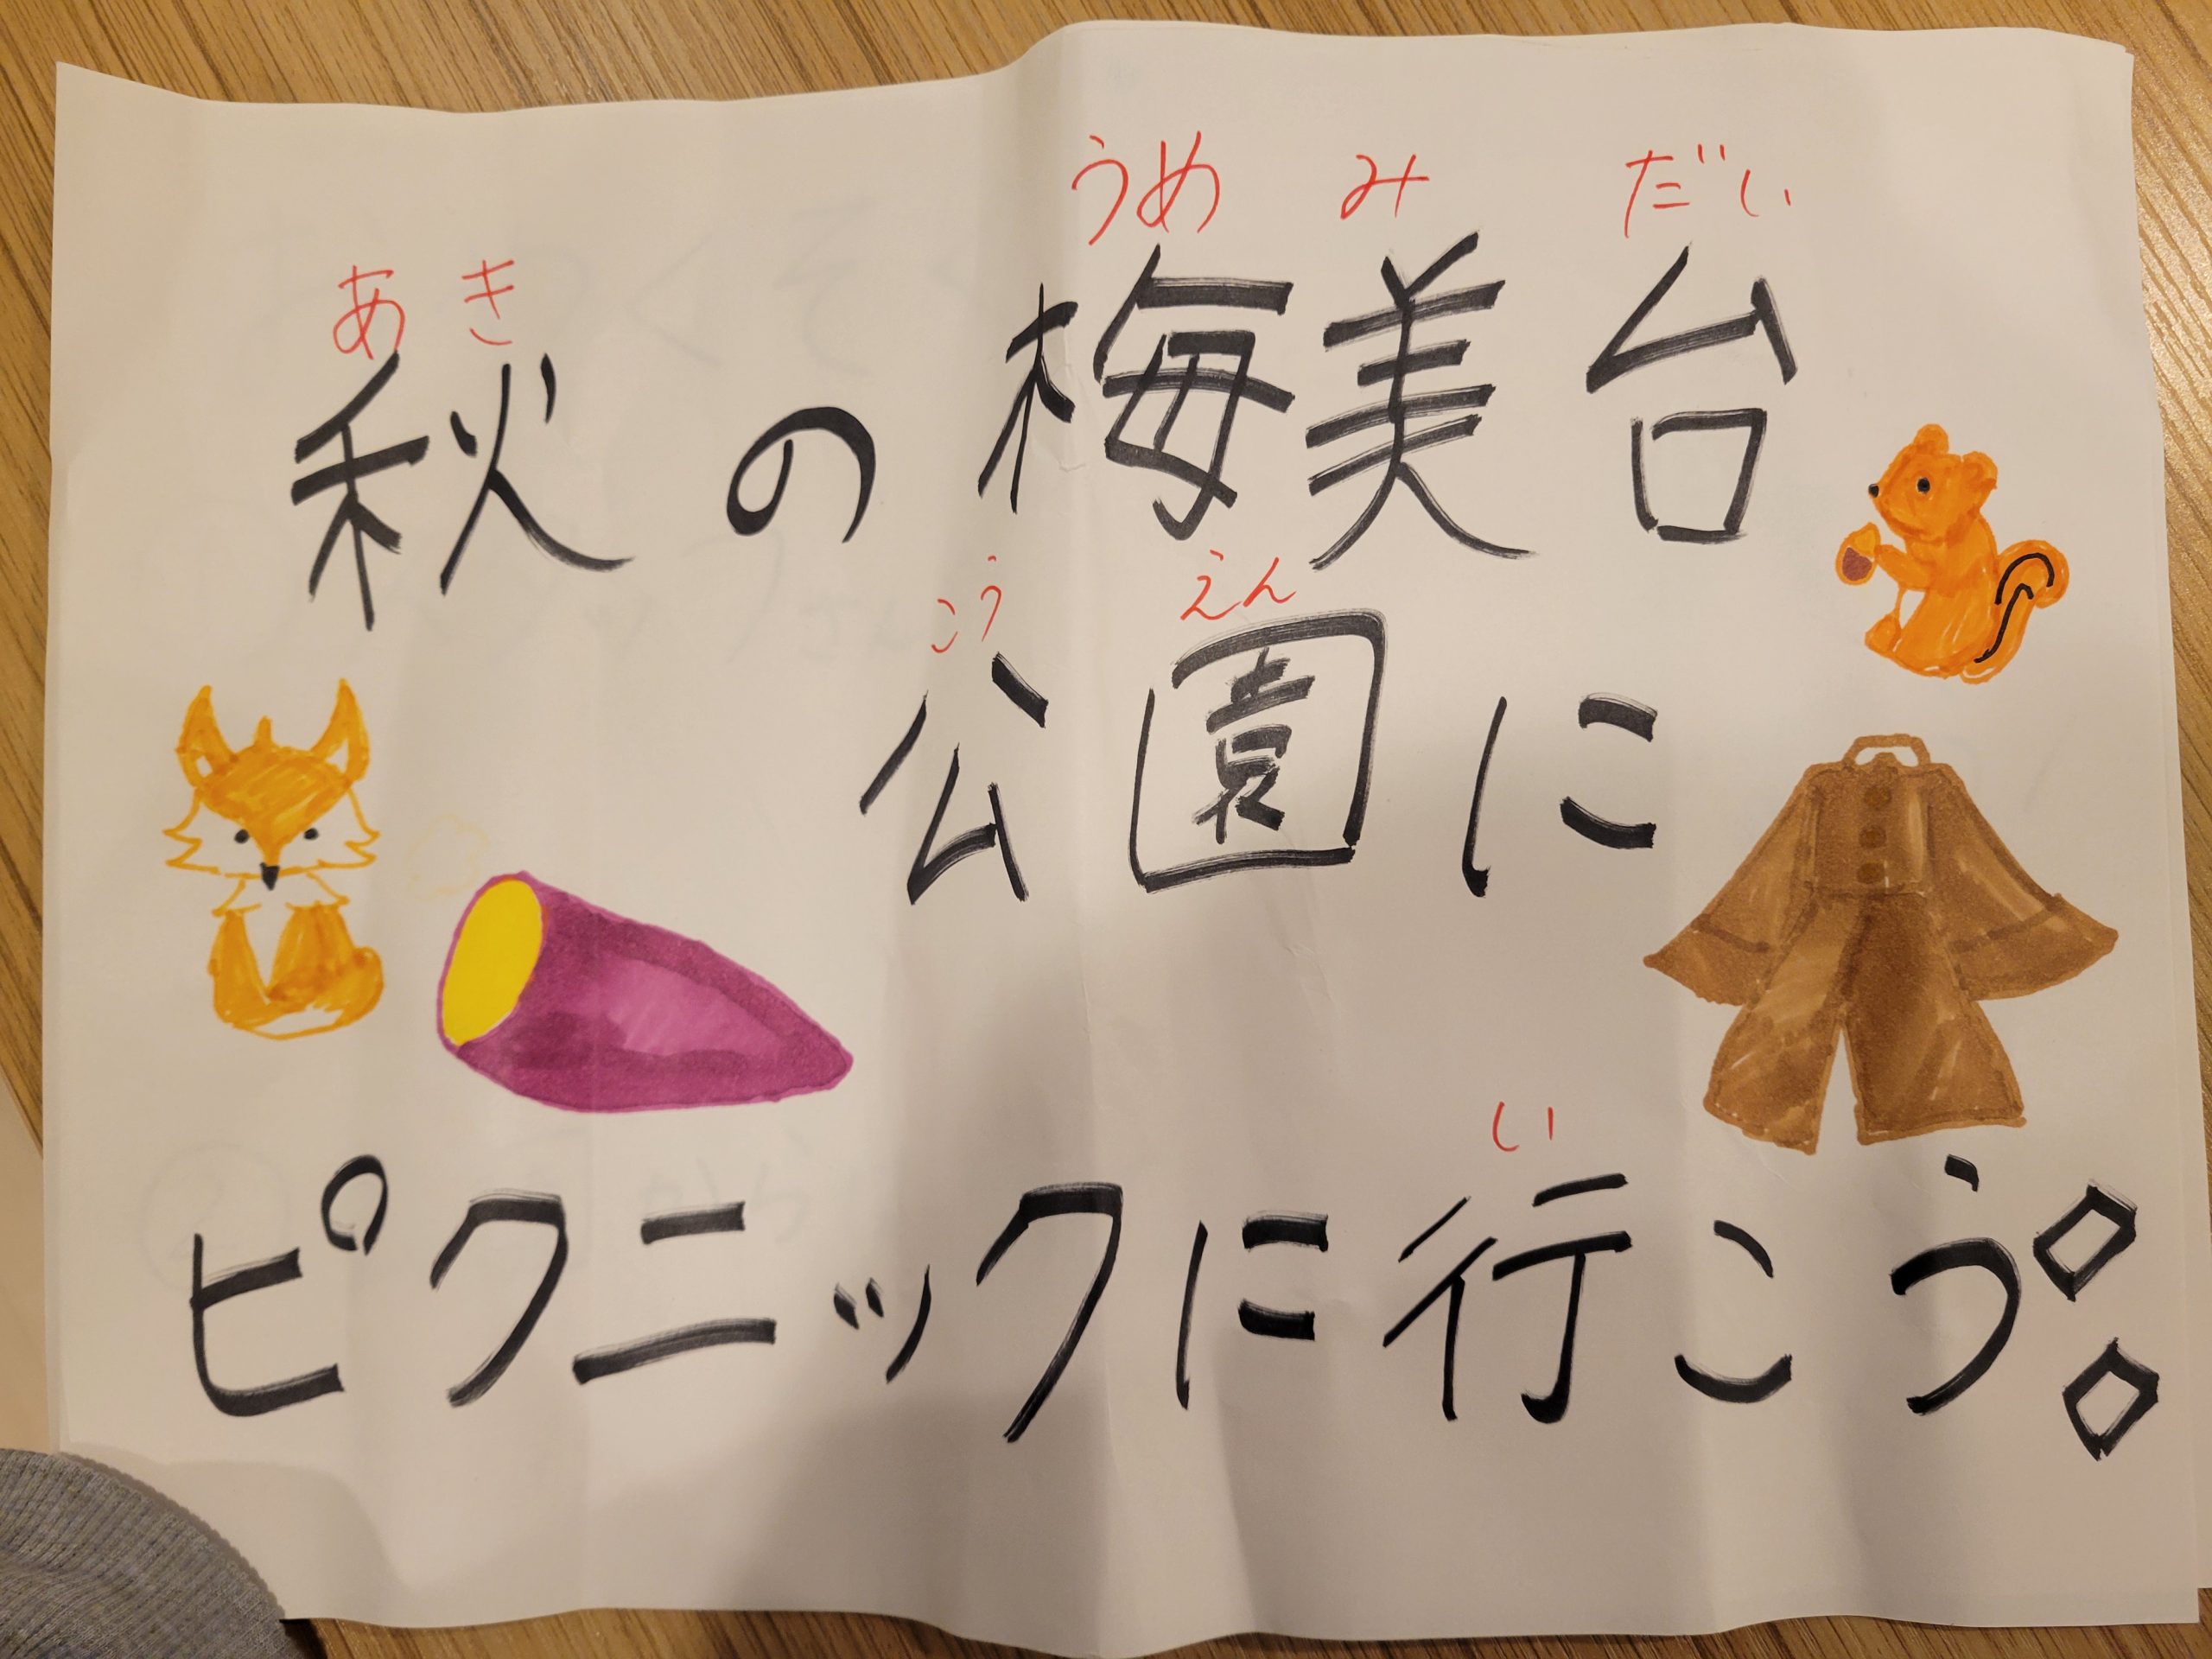 うめ み だい
あき
秋の梅美台
こう えん
公園に
い
ピクニックに行こう